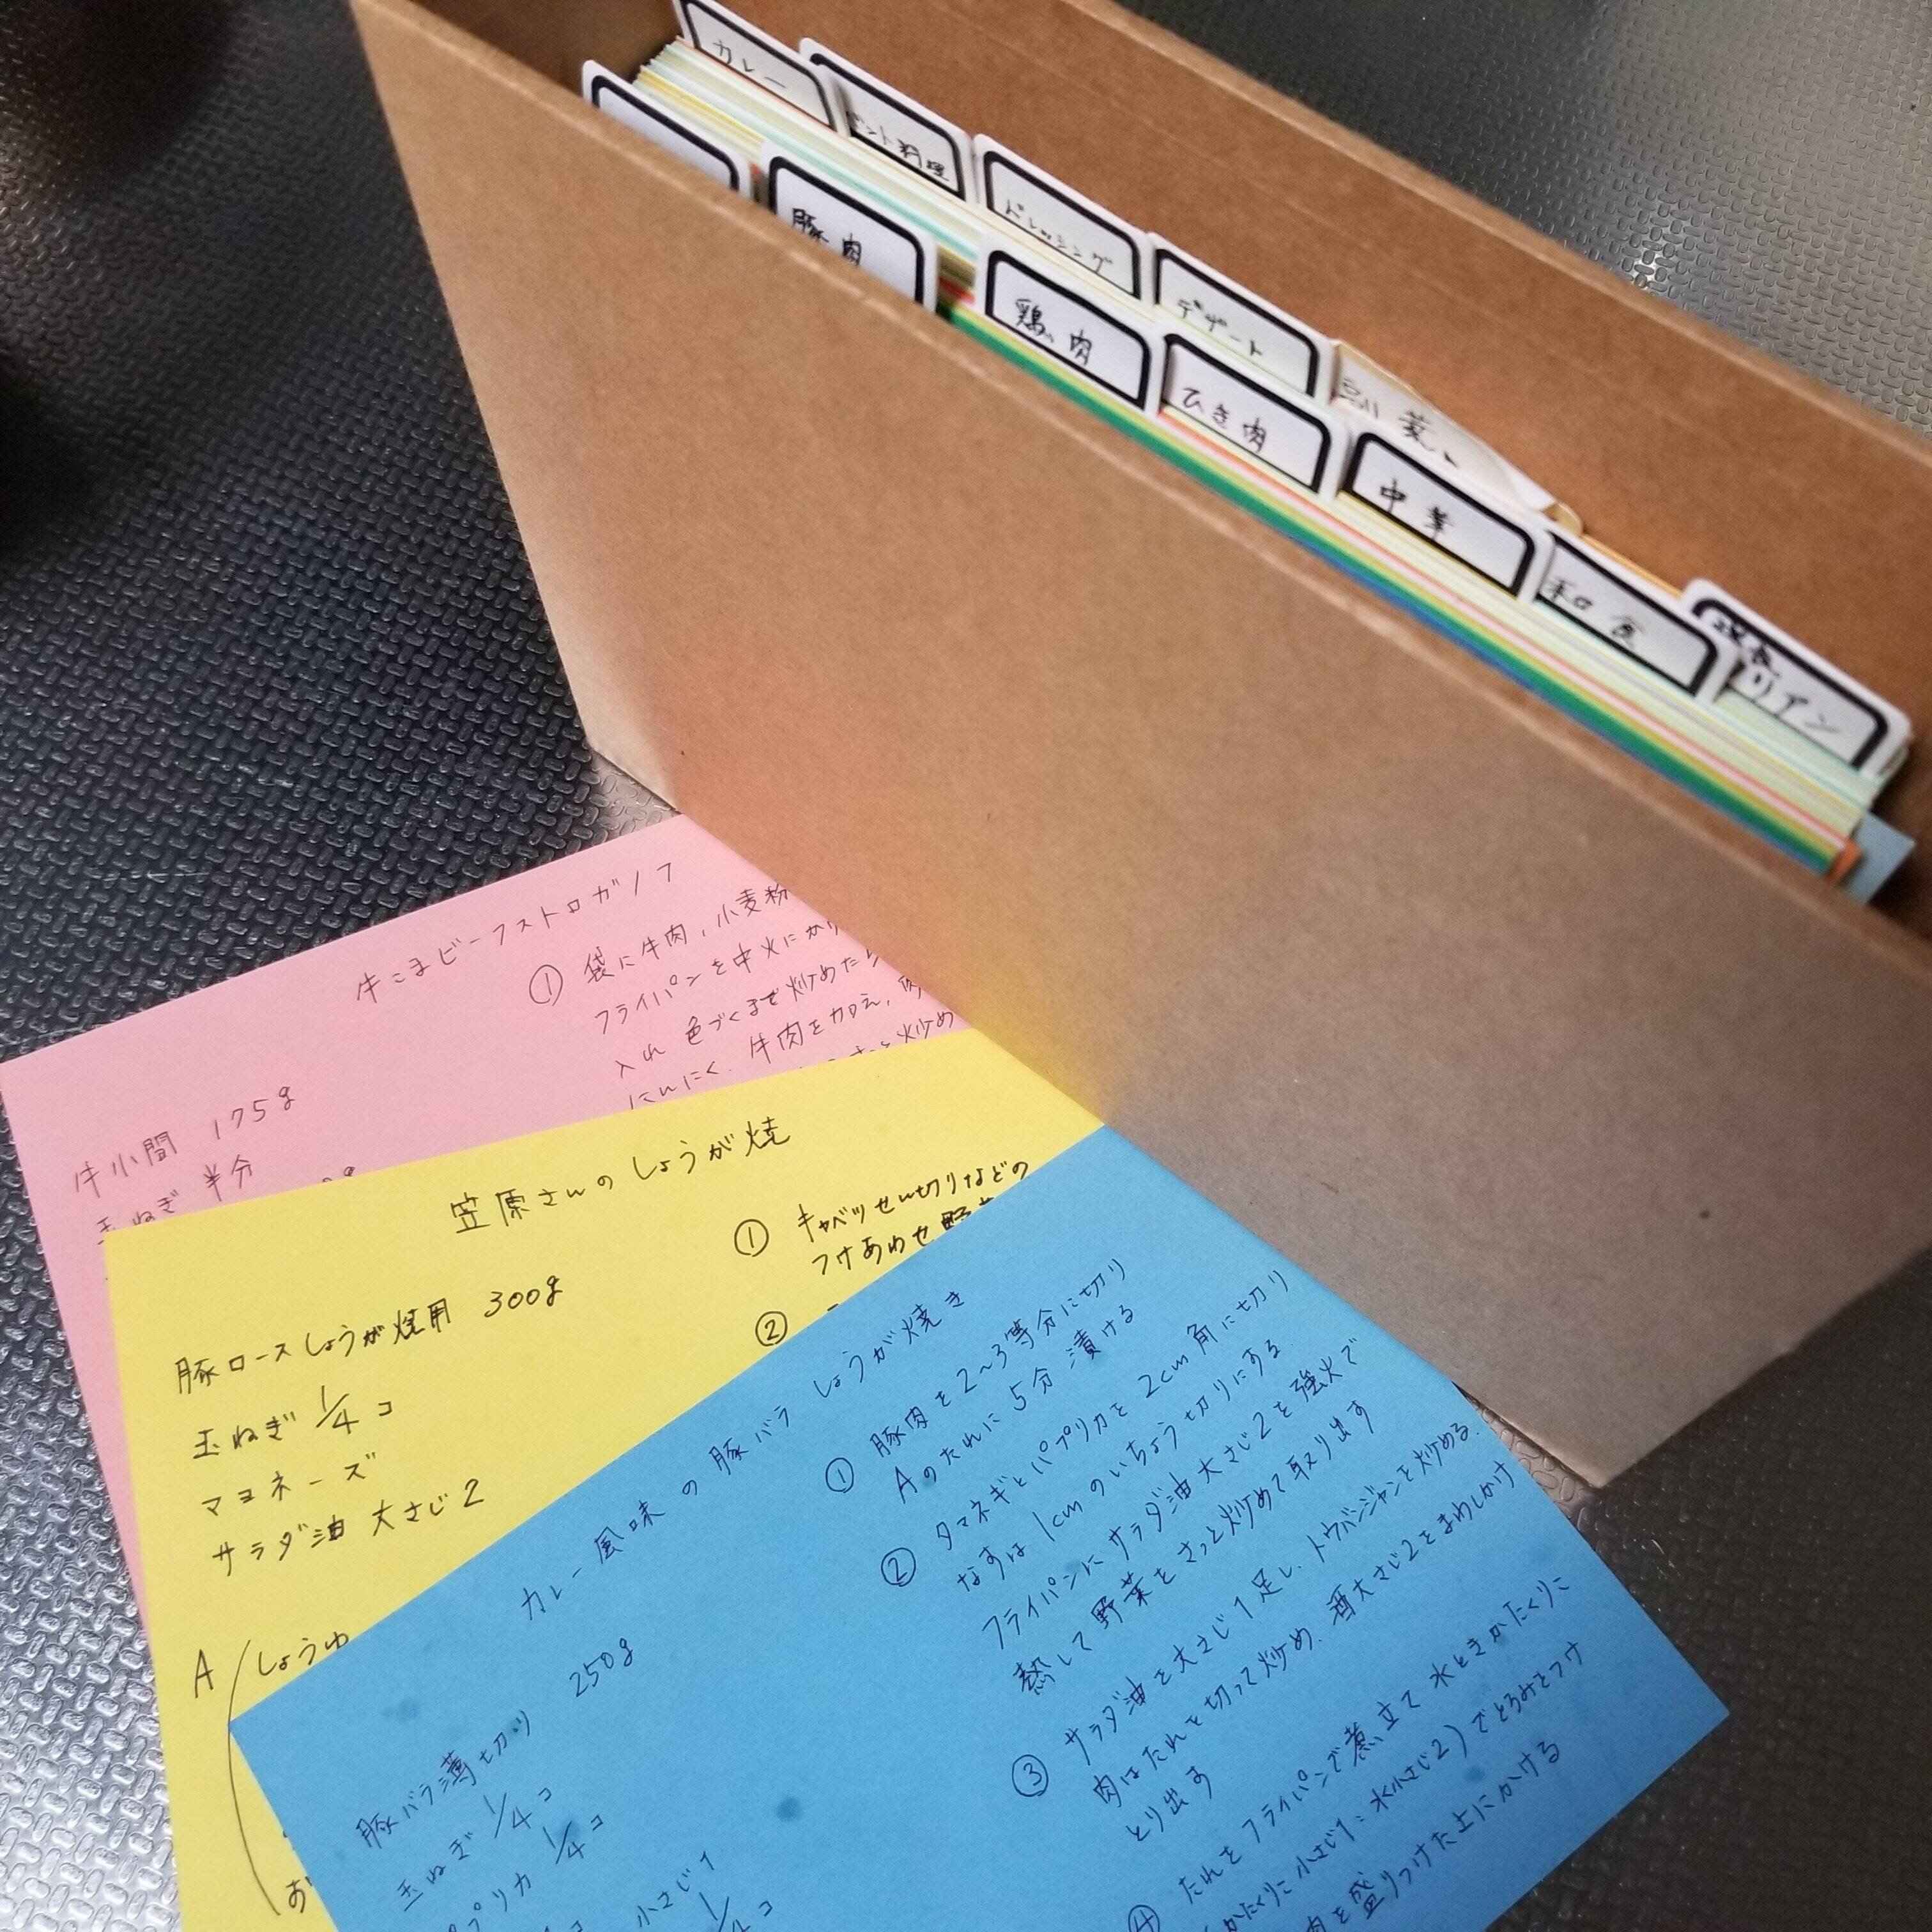 カレー
ント料理
ドレッシング
デザート
豚肉
鶏肉
ひき肉
中華
和食
リアン
牛こまビーフストロガノフ
牛小間 175g
玉ねぎ 半分
① 袋に牛肉、小麦粉
フライパンを中火にかけ
入れ 色づくまで炒めたら
にんにく、牛肉を加え、肉
炒め
笠原さんの しょうが焼
豚ロースしょうが焼用 300g
玉ねぎ 1/4コ
マヨネーズ
サラダ油 大さじ2
A しょうゆ
お
① キャベツせん切りなどの
つけあわせ野菜
②
カレー風味の豚バラ しょうが焼き
豚バラ薄切り 250g
玉ねぎ 1/4コ
プリカ 1/4コ
小さじ1
1/4コ
① 豚肉を2〜3等分に切り
Aのたれに5分漬ける
② タマネギとパプリカを2cm角に切り
なすは1cmのいちょう切りにする.
フライパンにサラダ油大さじ2を強火で
熱して野菜をさっと炒めて取り出す
③ サラダ油を大さじ1足し、トウバンジャンを炒める.
肉はたれを切って炒め、酒大さじ2をまわしかけ
とり出す
④ たれをフライパンで煮立て 水ときかたくりこ
かたくりこ小さじ1:水小さじ2)でとろみをつけ
肉を盛りつけた上にかける